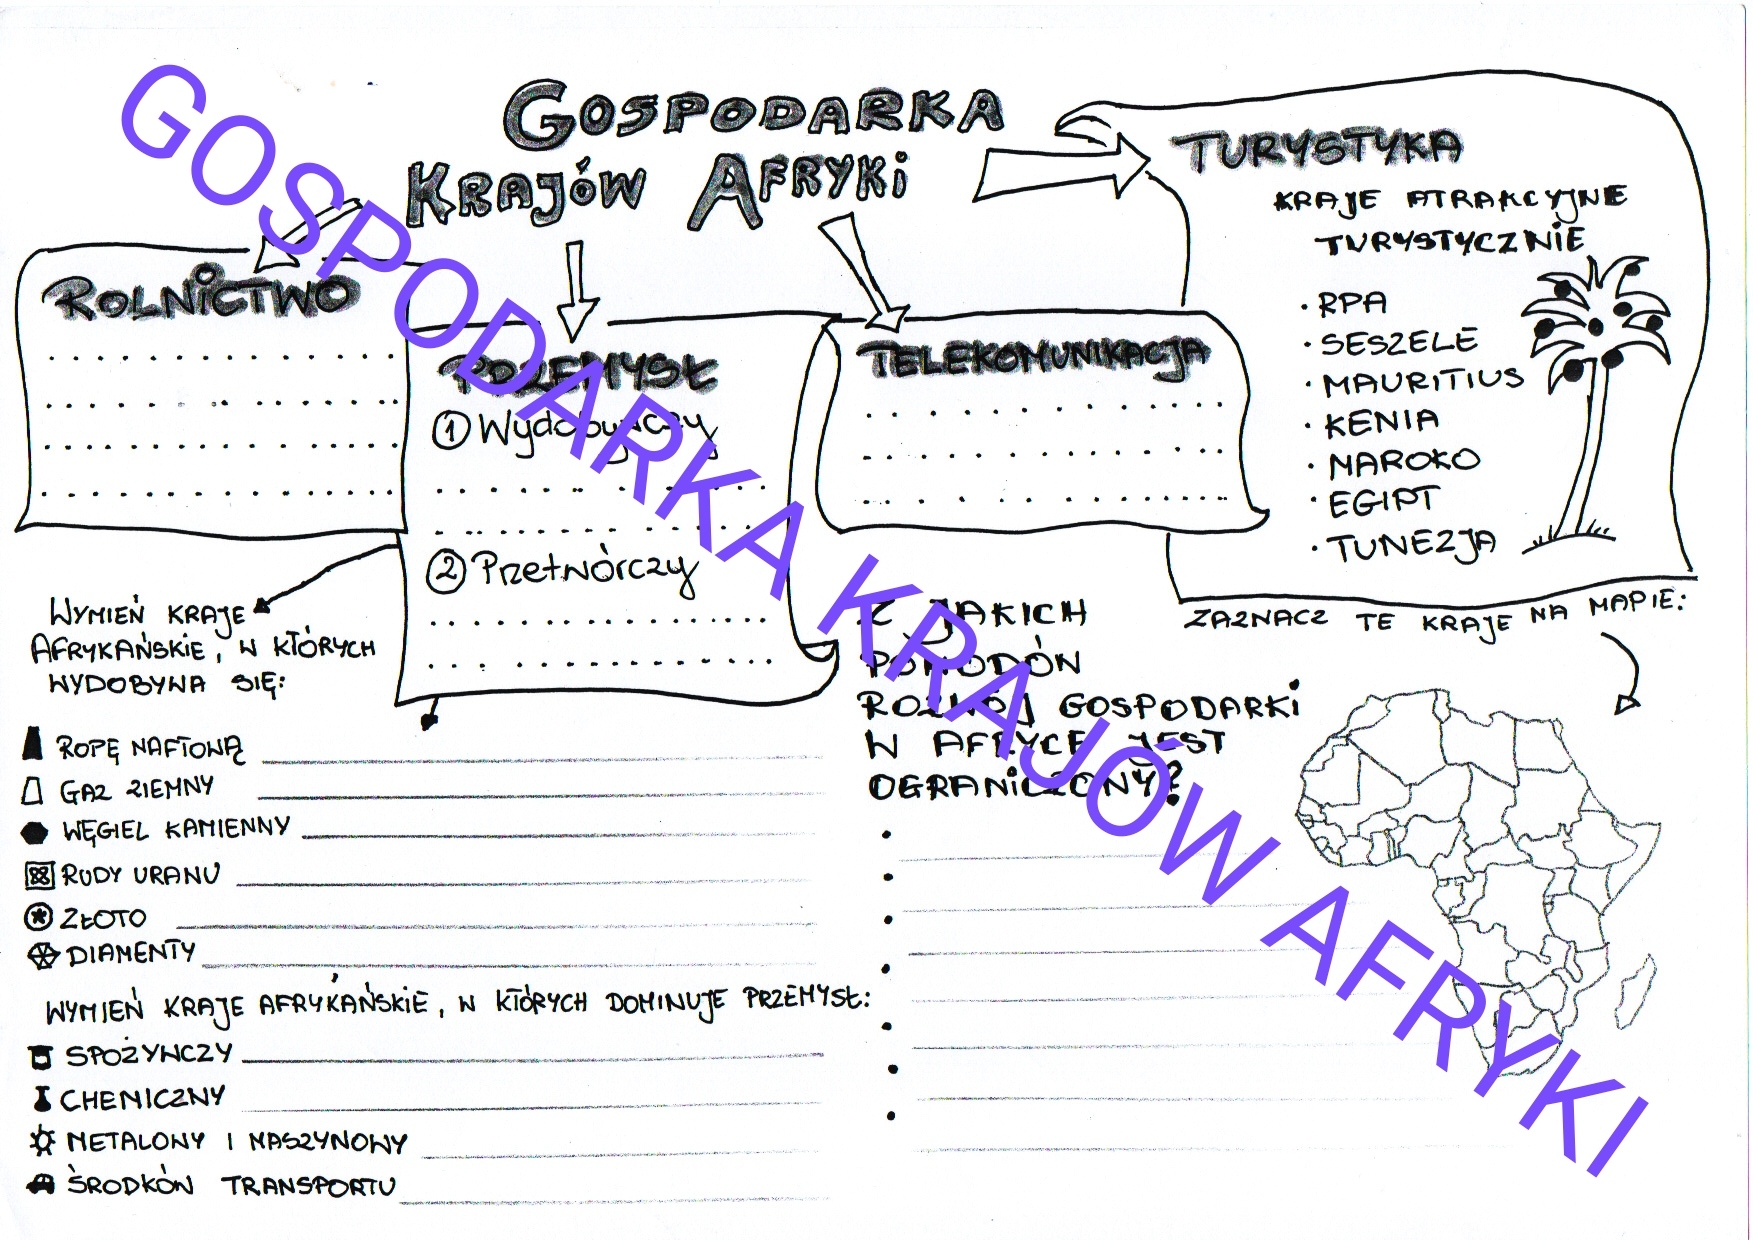 GOSPODARKA
KRAJÓW AFRYKI
GOSPODARKA KRAJÓW AFRYKI
ROLNICTWO
PRZEMYSŁ
① Wydobywczy
② Przetwórczy
TELEKOMUNIKACJA
TURYSTYKA
KRAJE ATRAKCYJNE
TURYSTYCZNIE
• RPA
• SESZELE
• MAURITIUS
• KENIA
• MAROKO
• EGIPT
• TUNEZJA
ZAZNACZ TE KRAJE NA MAPIE:
WYMIEŃ KRAJE
AFRYKAŃSKIE, W KTÓRYCH
WYDOBYWA SIĘ:
ROPĘ NAFTOWĄ
GAZ ZIEMNY
WĘGIEL KAMIENNY
RUDY URANU
ZŁOTO
DIAMENTY
WYMIEŃ KRAJE AFRYKAŃSKIE, W KTÓRYCH DOMINUJE PRZEMYSŁ:
SPOŻYWCZY
CHEMICZNY
METALOWY I MASZYNOWY
ŚRODKÓW TRANSPORTU
Z JAKICH
POWODÓW
ROZWÓJ GOSPODARKI
W AFRYCE JEST
OGRANICZONY?